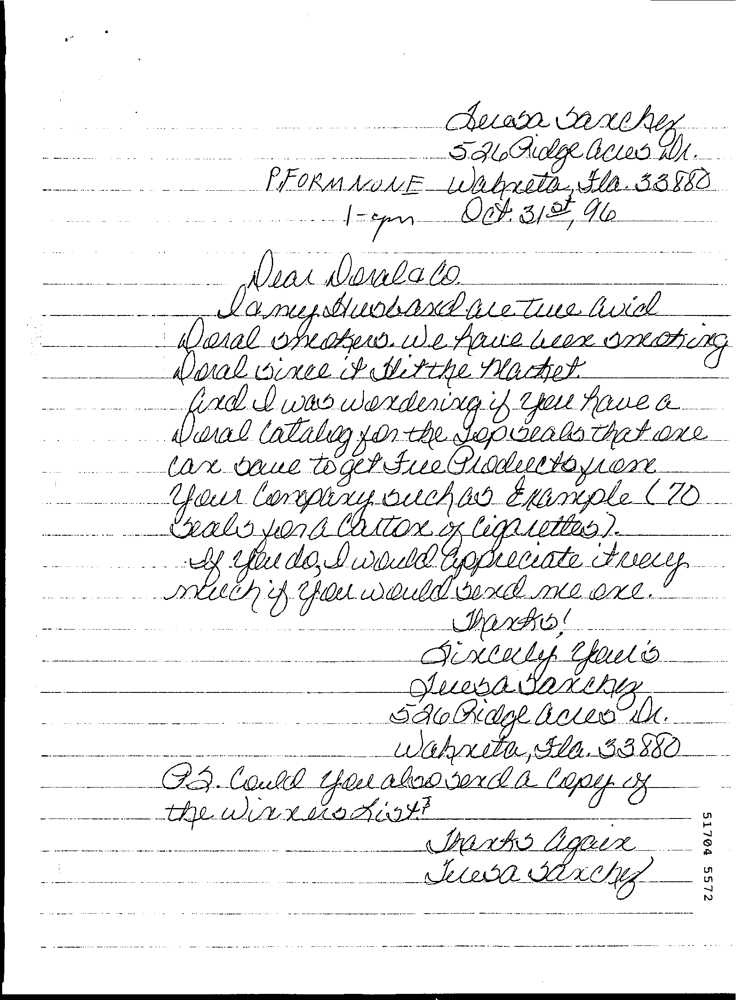 Teresa Sanchez
526 Ridge Acres Dr.
P.FORM NONE Wahneta, Fla. 33880
Oct. 31st, 96
Dear Doral & Co.
I & my Husband are true avid
Doral smokers. We have been smoking
Doral since it Hit the Market.
And I was wondering if you have a
Doral Catalog for the Top seals that one
can save to get Free Products from
your Company such as Example (70
seals for a Carton of Cigarettes).
If you do, I would appreciate it very
much if you would send me one.
Thanks!
Sincerly Your's
Teresa Sanchez
526 Ridge Acres Dr.
Wahneta, Fla. 33880
PS. Could you also send a Copy of
the Winners List?
Thanks Again
Teresa Sanchez
51704 5572